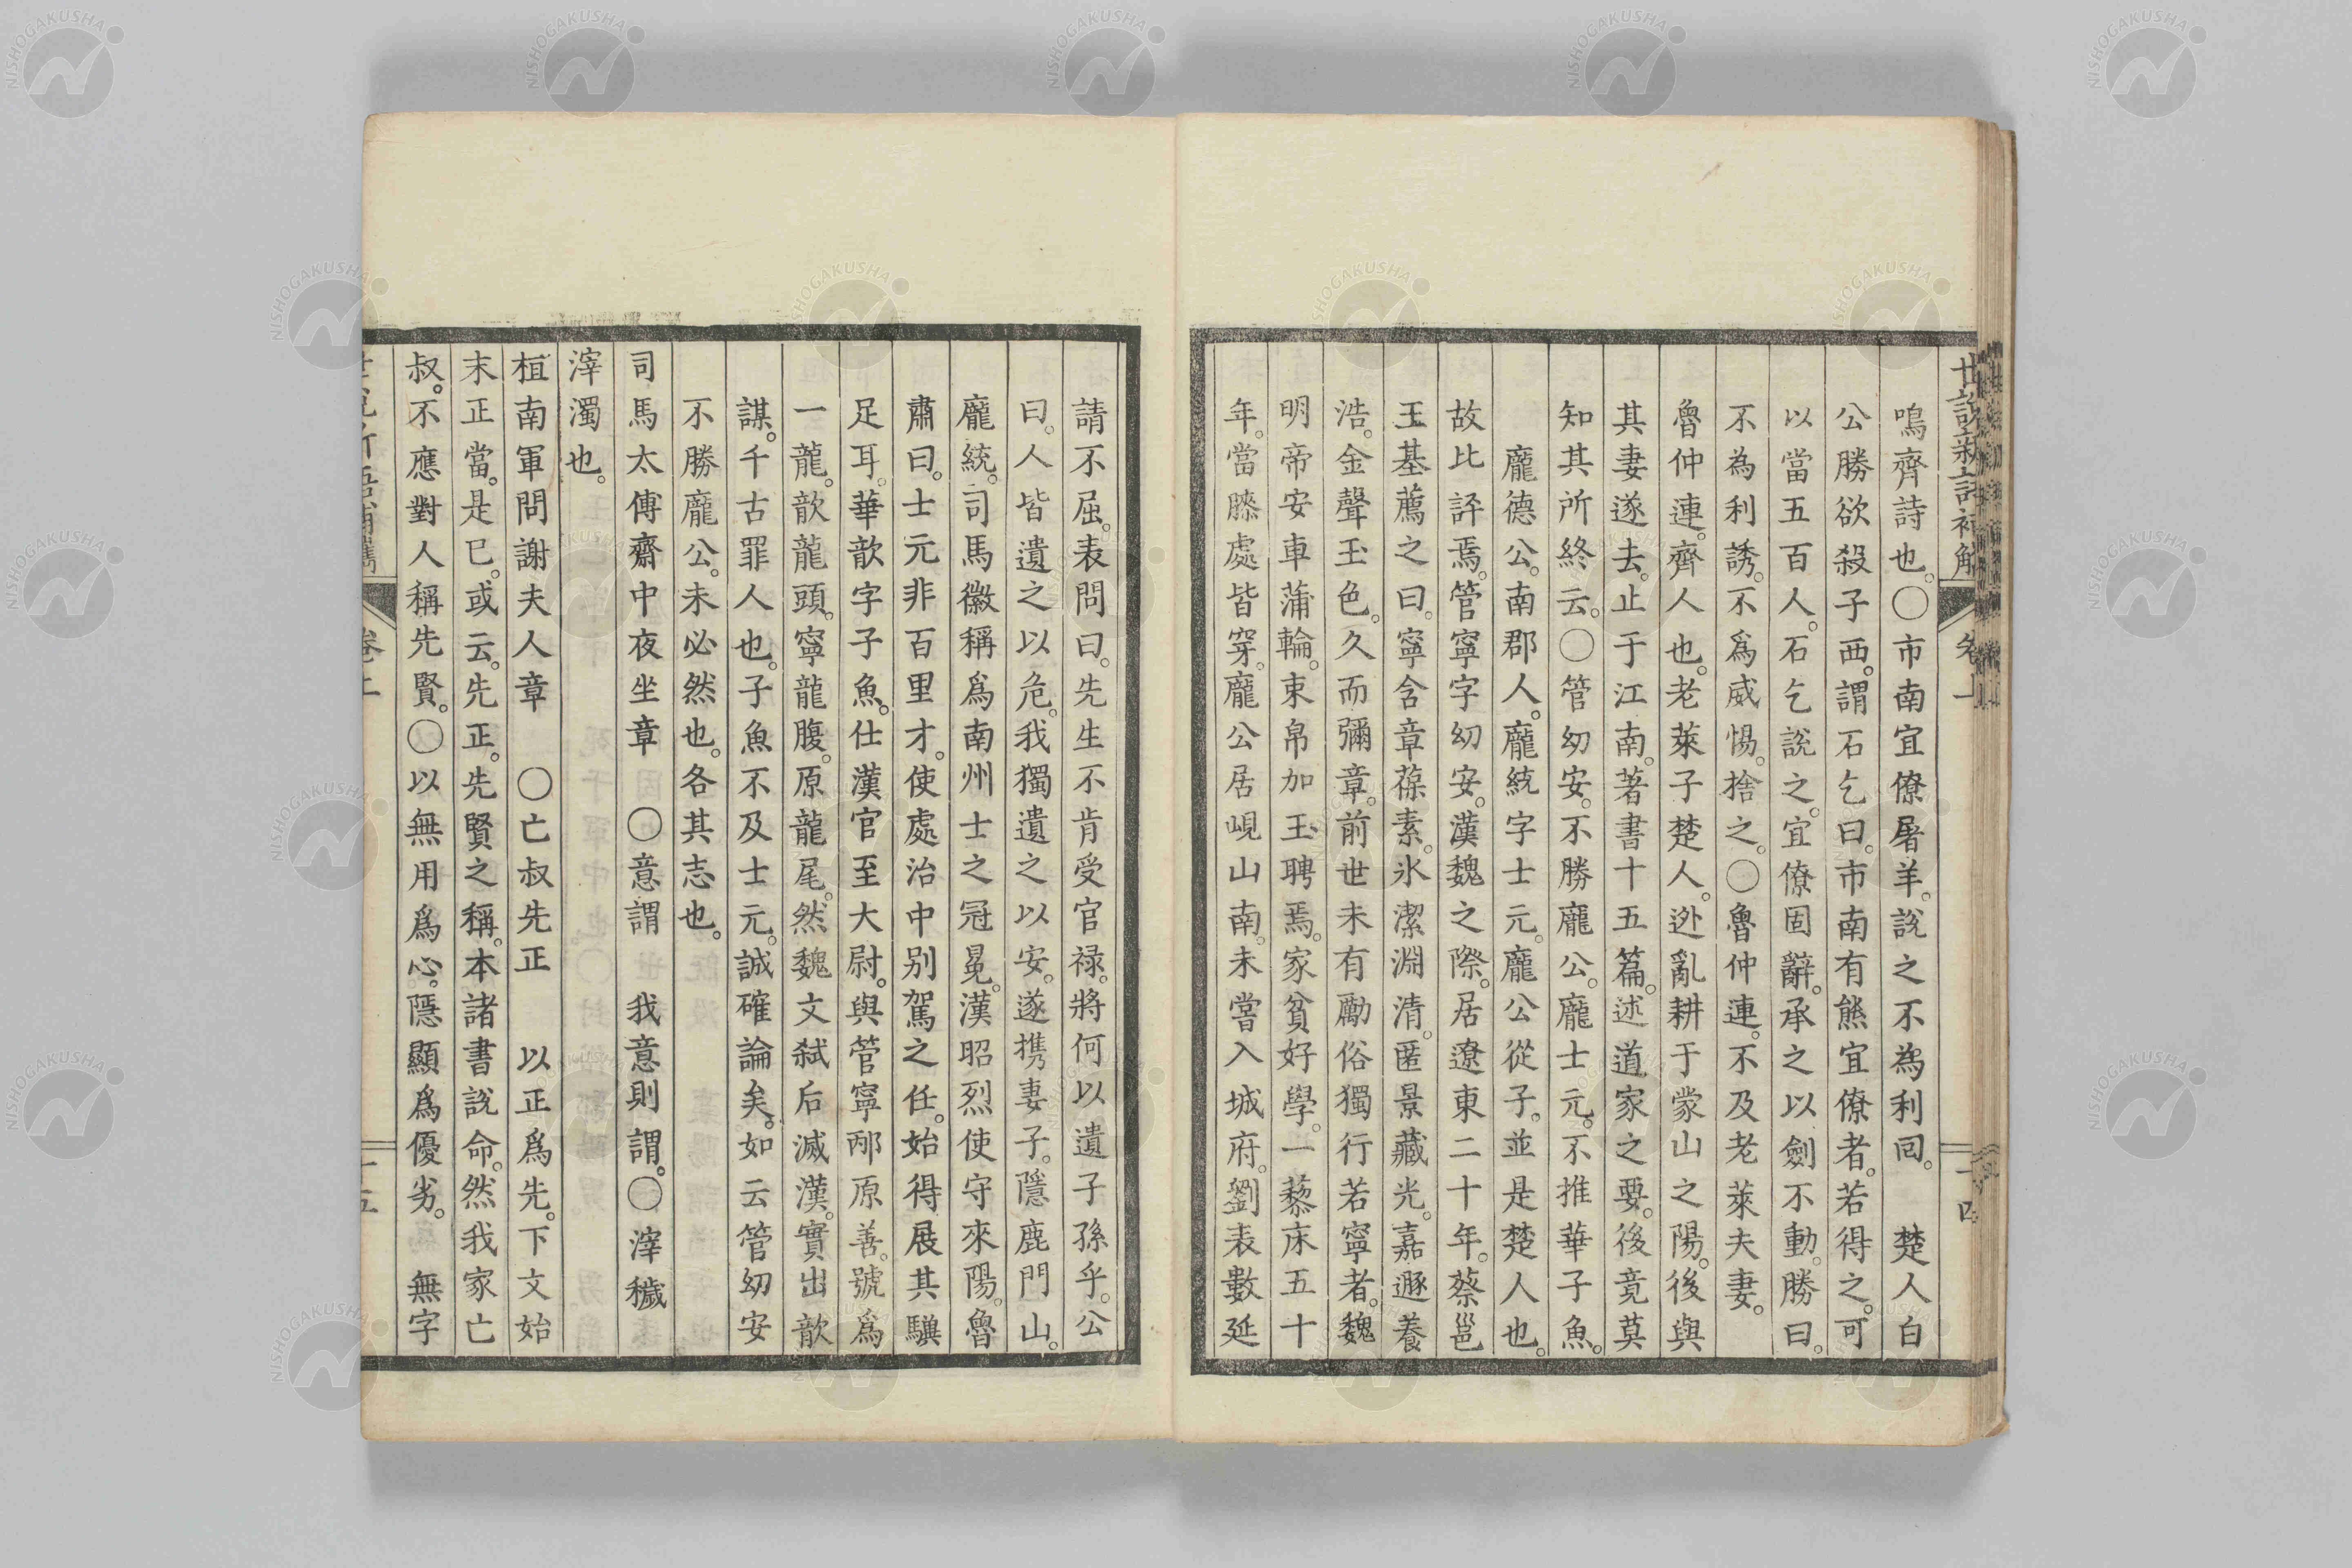 鳴齊詩也。〇市南宜僚屠羊。說之不為利囘。　楚人白
公勝欲殺子西。謂石乞曰。市南有熊宜僚者。若得之。可
以當五百人。石乞說之。宜僚固辭。承之以劍不動。勝曰。
不為利誘。不爲威惕。捨之。〇魯仲連。不及老萊夫妻。
魯仲連。齊人也。老萊子楚人。迯亂耕于蒙山之陽。後與
其妻遂去。止于江南。著書十五篇。述道家之要。後竟莫
知其所終云。〇管幼安。不勝龐公。龐士元。不推華子魚。
龐德公。南郡人。龐統字士元。龐公從子。並是楚人也。
故比評焉。管寧字幼安。漢魏之際。居遼東二十年。蔡邕
王基薦之曰。寧含章葆素。氷潔淵清。匿景藏光。嘉遯養
浩。金聲玉色。久而彌章。前世未有勵俗獨行若寧者。魏
明帝安車蒲輪。束帛加玉聘焉。家貧好學。一藜床五十
年。當膝處皆穿。龐公居峴山南。未嘗入城府。劉表數延
請不屈。表問曰。先生不肯受官祿。將何以遺子孫乎。公
曰。人皆遺之以危。我獨遺之以安。遂携妻子。隱鹿門山。
龐統。司馬徽稱爲南州士之冠冕。漢昭烈使守來陽。魯
肅曰。士元非百里才。使處治中别駕之任。始得展其驥
足耳。華歆字子魚。仕漢官至大尉。與管寧邴原善。號爲
一龍。歆龍頭。寧龍腹。原龍尾。然魏文弑后滅漢。實出歆
謀。千古罪人也。子魚不及士元。誠確論矣。如云管幼安
不勝龐公。未必然也。各其志也。
司馬太傅齋中夜坐章　〇意謂　我意則謂。〇滓穢
滓濁也。
桓南軍問謝夫人章　〇亡叔先正　以正爲先。下文始
末正當。是已。或云。先正。先賢之稱。本諸書說命。然我家亡
叔。不應對人稱先賢。〇以無用爲心。隱顯爲優劣。　無字